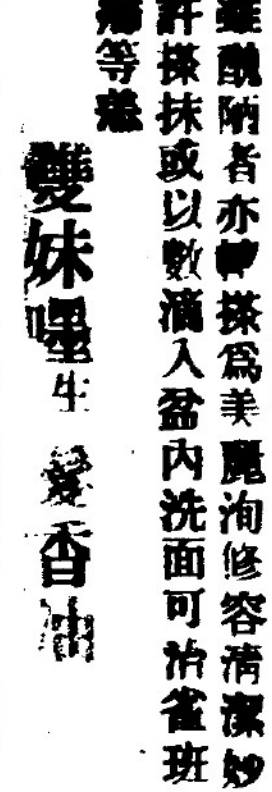 雖醜陋者亦轉搽爲美麗洵修容清潔妙
許搽抹或以數滴入盆內洗面可治雀班
等恙
雙妹嚜生髮香油